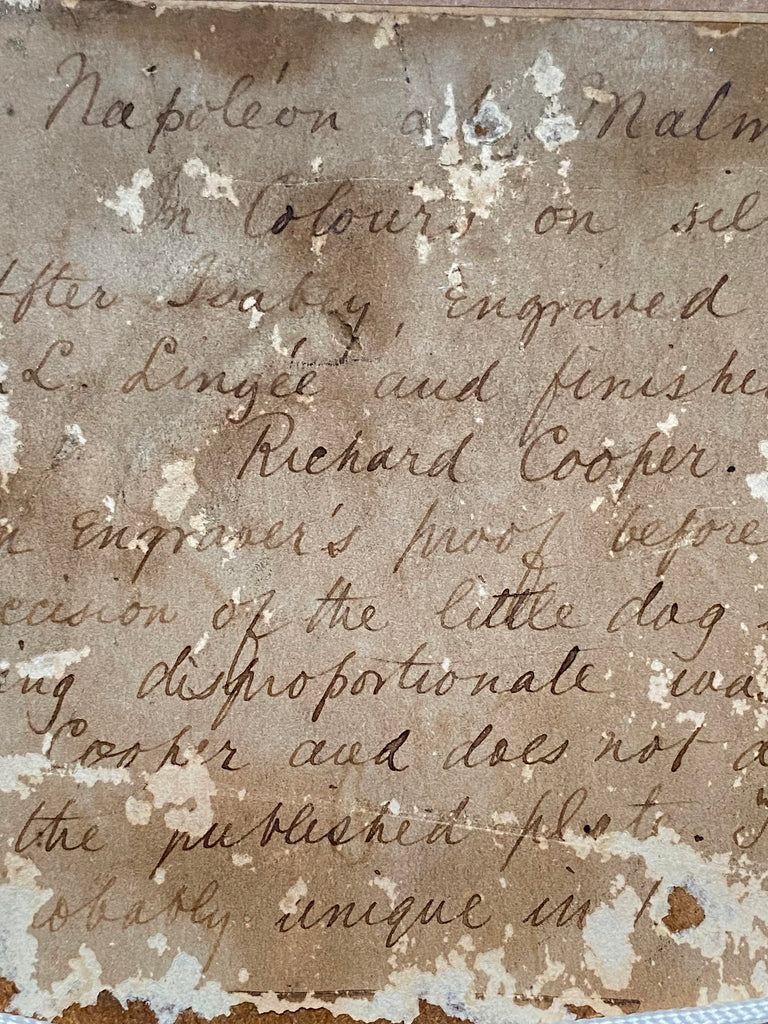 Napoléon at Malm
In Colours on sil
After Isabey, engraved
L. Lingée and finishe
Richard Cooper.
n Engraver's proof before
ecision of the little dog
ing disproportionate wa
Cooper and does not a
the published plate. T
obably unique in